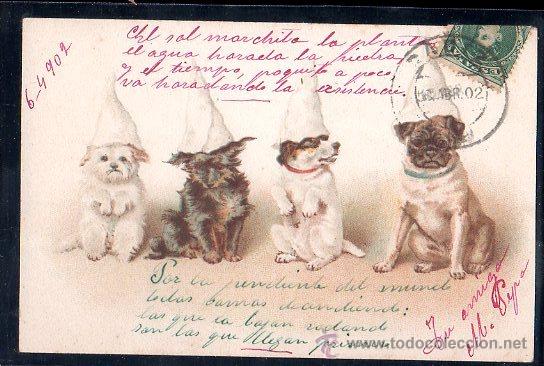 El sol marchita la planta
el agua horada la piedra
y el tiempo, poquito a poco
va horadando la existencia
6-4 902
ABR.02
Por la pendiente del mundo
todos vamos
las que bajan rodando
son las que llegan primero
Tu amiga
M. Pepa
www.todocoleccion.net